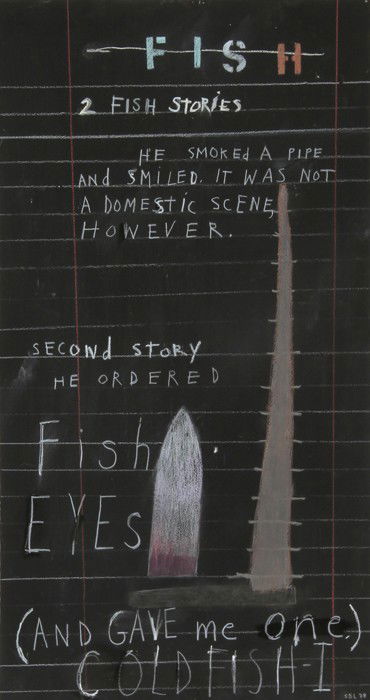 FISH
2 FISH STORIES
HE SMOKED A PIPE
AND SMILED. IT WAS NOT
A DOMESTIC SCENE,
HOWEVER.
SECOND STORY
HE ORDERED
Fish.
EYEs
(AND GAVE me one.)
COLDFISH-I